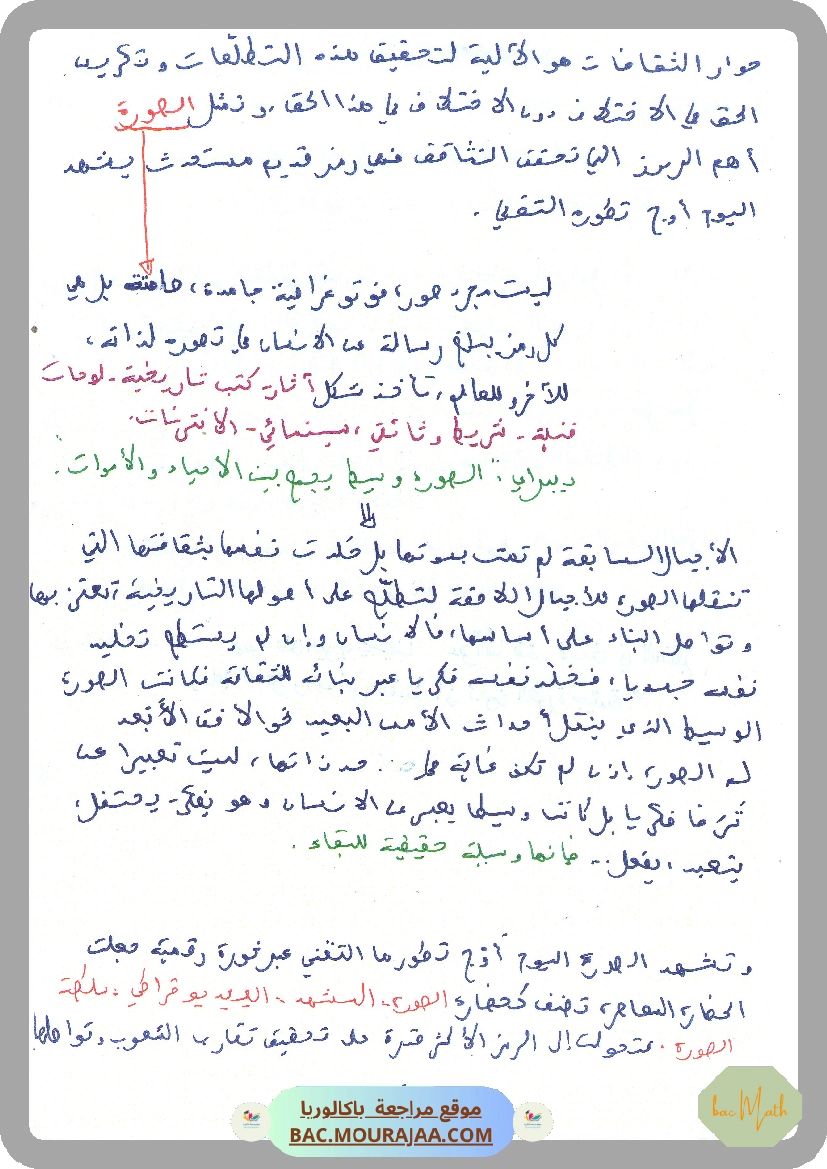 حوار الثقافات هو الألية لتحقيق هذه التطلّعات و تكريس
الحق في الاختلاف دون الاختلاف في هذا الحق، و تمثل الصورة
أهم الرموز التي تحقق التثاقف فهي رمز قديم مستحدث يشهد
اليوم أوج تطوره التقني .
ليست مجرد صورة فوتوغرافية جامدة، صامتة بل هي
كل رمز يبلغ رسالة عن الانسان في تصوره لذاته،
للآخر و للعالم، تأخذ شكل أثار- كتب تاريخية - لوحات
فنية - شريط وثائقي، سينمائي - الانترنات.
ديبراي: "الصورة وسيط يجمع بين الأحياء والأموات".
الأجيال السابقة لم تمت بموتها بل خلدت نفسها بثقافتها التي
تنقلها الصورة للأجيال اللاحقة لتطلّع على أصولها التاريخية، تعتز بها
و تواصل البناء على أساسها، فالانسان و إن لم يستطع تخليد
نفسه جسديا، فخلّد نفسه فكريا عبر بنائه للثقافة فكانت الصورة
الوسيط الذي ينقل أحداث الأمس البعيد نحو الافق الأبعد
له الصورة إذن لم تكن غاية في حد ذاتها، ليست تعبيرا عن
تَرَفا فكريا بل كانت وسيطا يعبر عن الانسان و هو يفكر- يحتفل،
يتعبد، يفعل .. فإنها وسيلة حقيقية للبقاء .
و تشهد الصورة اليوم أوج تطورها التقني عبر ثورة رقمية جعلت
الحضارة المعاصرة تصنف كحضارة الصورة - المشهد - الفيديوقراطي،
الصورة . تحولت إلى الرمز الأكثر قدرة على تحقيق تقارب الشعوب و تواصلها
موقع مراجعة باكالوريا
BAC.MOURAJAA.COM
bac Math